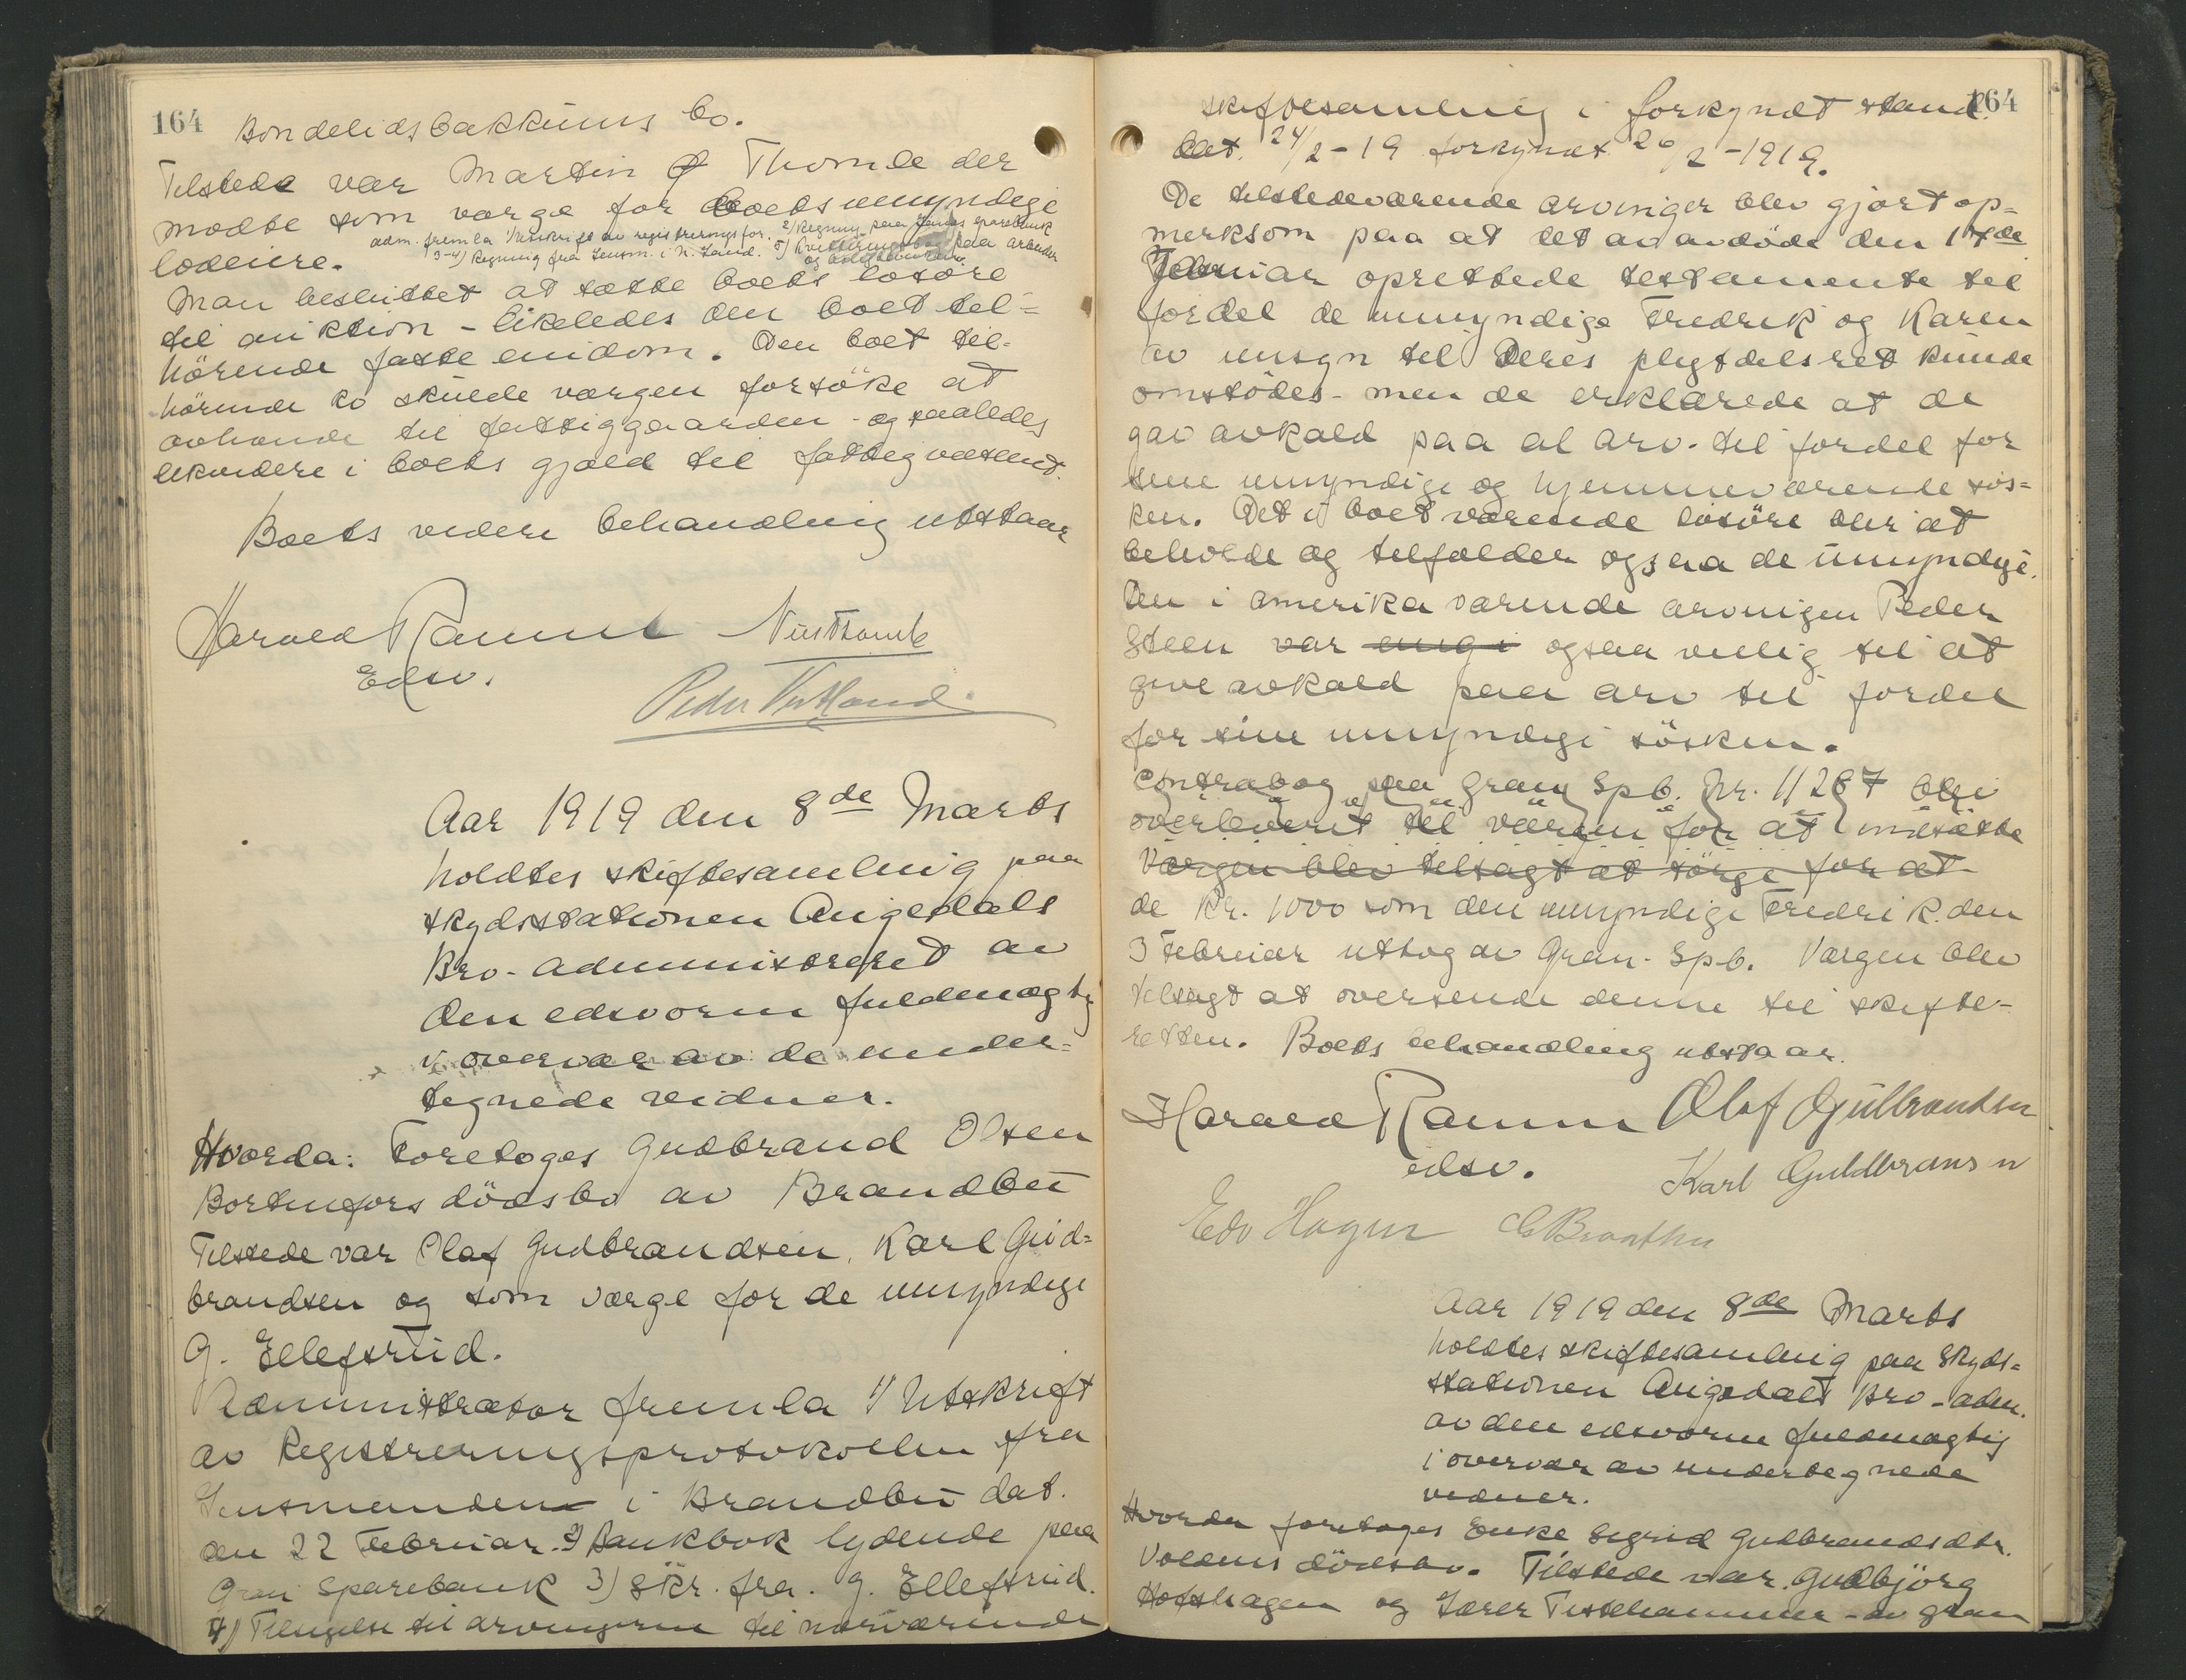 164
Bondelidsbakkums bo.
Tilstede var Martin Ø Thomle der
mødte som værge for boets umyndige
adm. fremla 1/ Utskrift av registreringsfor. 2/ Regning paa Lands sparebank
3-4) Regning fra Lensm. i N. Land. 5) paa arbeider
lodeiere.
Man besluttet at sætte boets løsøre
til auktion - likeledes den boet til=
hörende faste eiendom. Den boet til-
hörende ko skulde værgen forsöke at
avhende til fattiggaarden - og saaledes
likvidere i boets gjæld til fattigvæsenet.
Boets videre behandling utstaar
Harald Ramm
Edsv.
Peder
Aar 1919 den 8de Marts
holdtes skiftesamling paa
skydsstationen Augedals
Bro - administreret av
den edsvorne fuldmægtig
i overvær av de under=
tegnede vidner.
Hvorda: Foretoges Gudbrand Olsen
Bortenfors dödsbo av Brandbu
Tilstede var Olaf Gudbrandsen, Karl Gud=
brandsen og som værge for de umyndige
G. Ellefsrud.
Administrator fremla 1/ Utskrift
av Registreringsprotokollen fra
Lensmanden i Brandbu dat.
den 22 Februar. 2) Bankbok lydende paa
Gran Sparebank 3) Skr. fra. G. Ellefsrud.
4) Tilsigelse til arvingerne til nærværende
164
skiftesamling i forkyndt stand.
dat. 24/2-19 forkyndt 26/2-1919.
De tilstedeværende arvinger blev gjort op=
merksom paa at det av avdöde den 17de
Februar oprettede testamente til
fordel de umyndige Fredrik og Karen
av hensyn til Deres pligtdelsret kunde
omstödes - men de erklærede at de
gav avkald paa al arv - til fordel for
sine umyndige og hjemmeværende sös=
ken. Det i boet værende lösöre blir at
beholde og tilfalder ogsaa de umyndige.
Den i Amerika værende arvingen Peder
Steen var ogsaa villig til at
give avkald paa arv til fordel
for sine umyndige sösken.
Contrabog paa Gran Spb. Nr. 11267 blev
overleveret til værgen for at indsætte
Værgen blev tilsagt at sörge for at
de Kr. 1000 som den umyndige Fredrik. den
3 Februar uttog av Gran. Spb. Værgen blev
tilsagt at oversende denne til skifte-
retten. Boets behandling utstaar.
Harald Ramm Olaf Gulbrandsen
edsv.
Karl Guldbransn
Edv Hagen G Braathen
Aar 1919 den 8de Marts
holdtes skiftesamling paa Skyds=
stationen Augedals Bro - adm.
av den edsvorne fuldmægtig
i overvær av undertegnede
vidner.
Hvorda foretoges Enke Sigrid Gudbrandsdtr.
Voldens dödsbo. Tilstede var Gudbjörg
Hofshagen og Lærer - av Gran